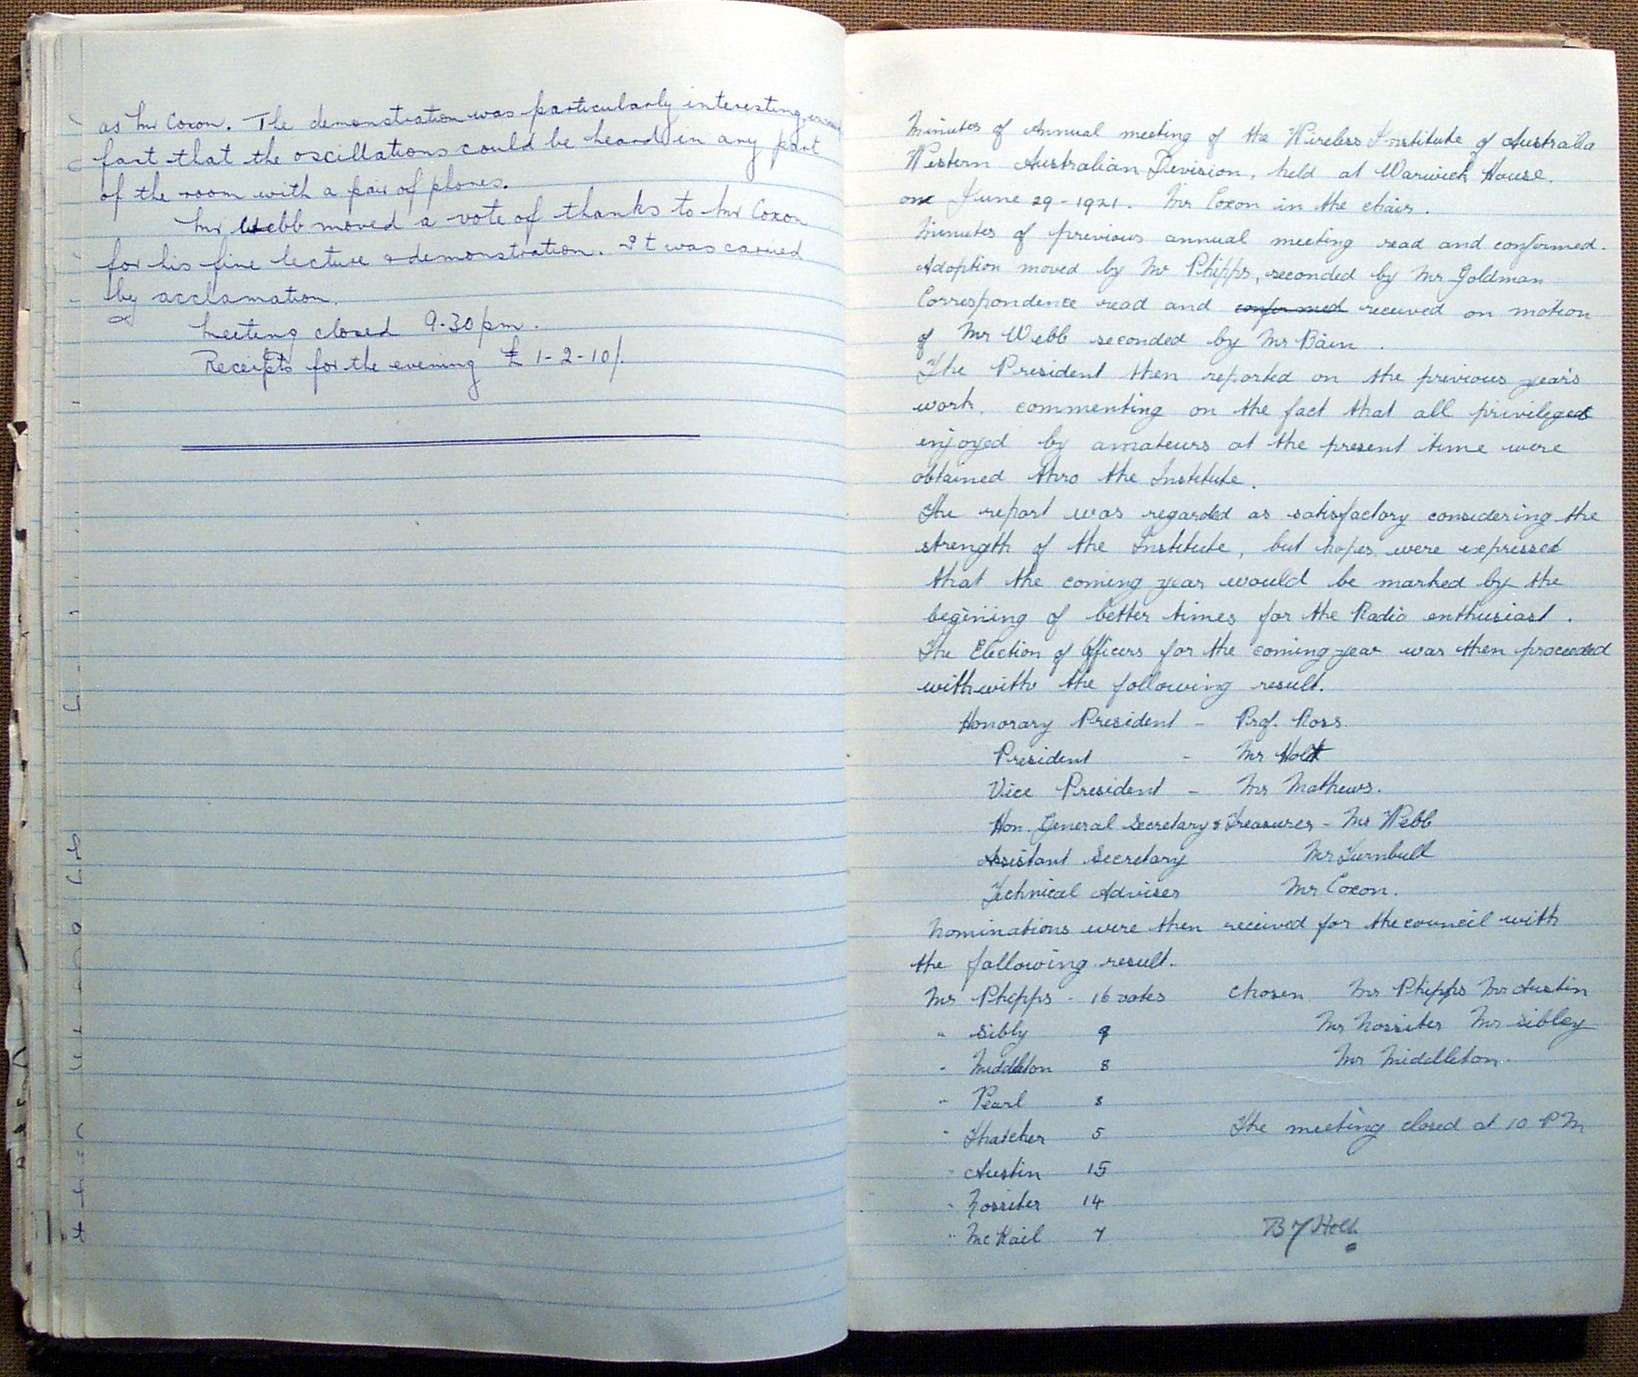 as Mr Coxon. The demonstration was particularly interesting,
fact that the oscillations could be heard in any part
of the room with a pair of phones.
Mr Webb moved a vote of thanks to Mr Coxon
for his fine lecture & demonstration. It was carried
by acclamation.
Meeting closed 9.30 pm.
Receipts for the evening £ 1-2-10/.
Minutes of Annual meeting of the Wireless Institute of Australia
Western Australian Division, held at Warwick House.
on June 29-1921. Mr Coxon in the chair.
Minutes of previous annual meeting read and confirmed.
Adoption moved by Mr Phipps, seconded by Mr Goldman
Correspondence read and confirmed received on motion
of Mr Webb seconded by Mr Bain.
The President then reported on the previous year's
work, commenting on the fact that all privileges
enjoyed by amateurs at the present time were
obtained thro the Institute.
The report was regarded as satisfactory considering the
strength of the Institute, but hopes were expressed
that the coming year would be marked by the
begining of better times for the Radio enthusiast.
The Election of Officers for the coming year was then proceeded
with with the following result.
Honorary President - Prof. Ross.
President - Mr Holt
Vice President - Mr Mathews.
Hon. General Secretary & Treasurer - Mr Webb
Assistant Secretary Mr Turnbull
Technical Adviser Mr Coxon.
Nominations were then received for the council with
the following result.
Mr Phipps - 16 votes chosen Mr Phipps Mr Austin
" Sibly 9 Mr Rossiter Mr Sibley
" Middleton 8 Mr Middleton.
" Pearl 8
" Thatcher 5 The meeting closed at 10 PM
" Austin 15
" Rossiter 14
" McKail 7 Holt